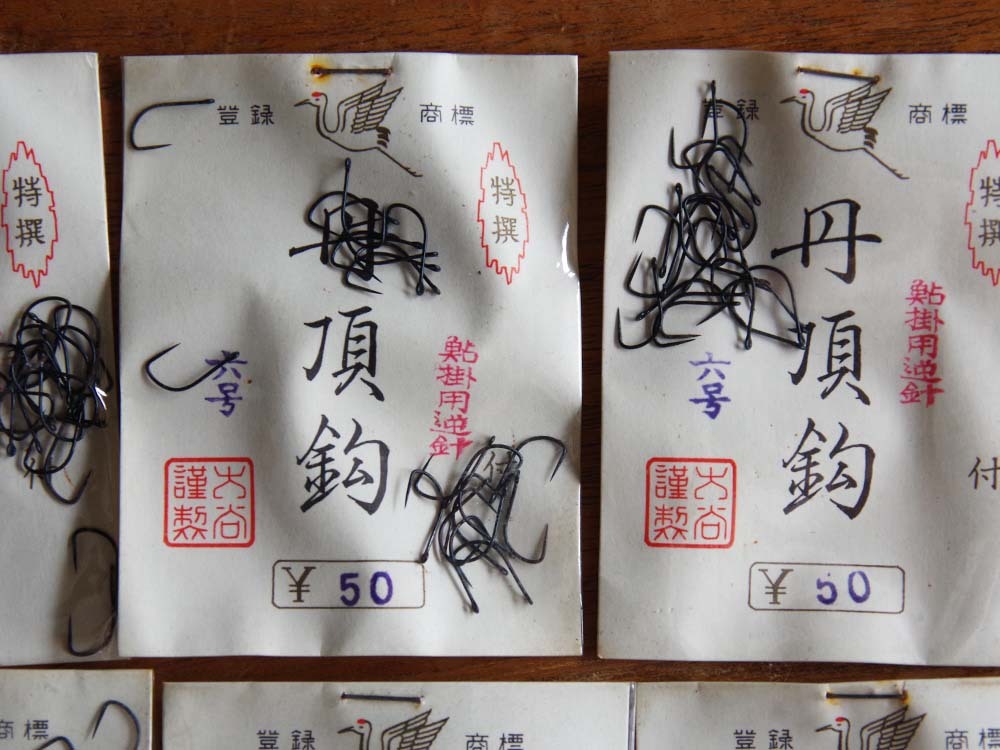 特撰
付
登録 商標
特撰
丹頂鈎
鮎掛用逆針
六号
大谷謹製
付
¥50
登録 商標
特撰
丹頂鈎
鮎掛用逆針
六号
大谷謹製
付
¥50
商標
登録 商標
登録 商標